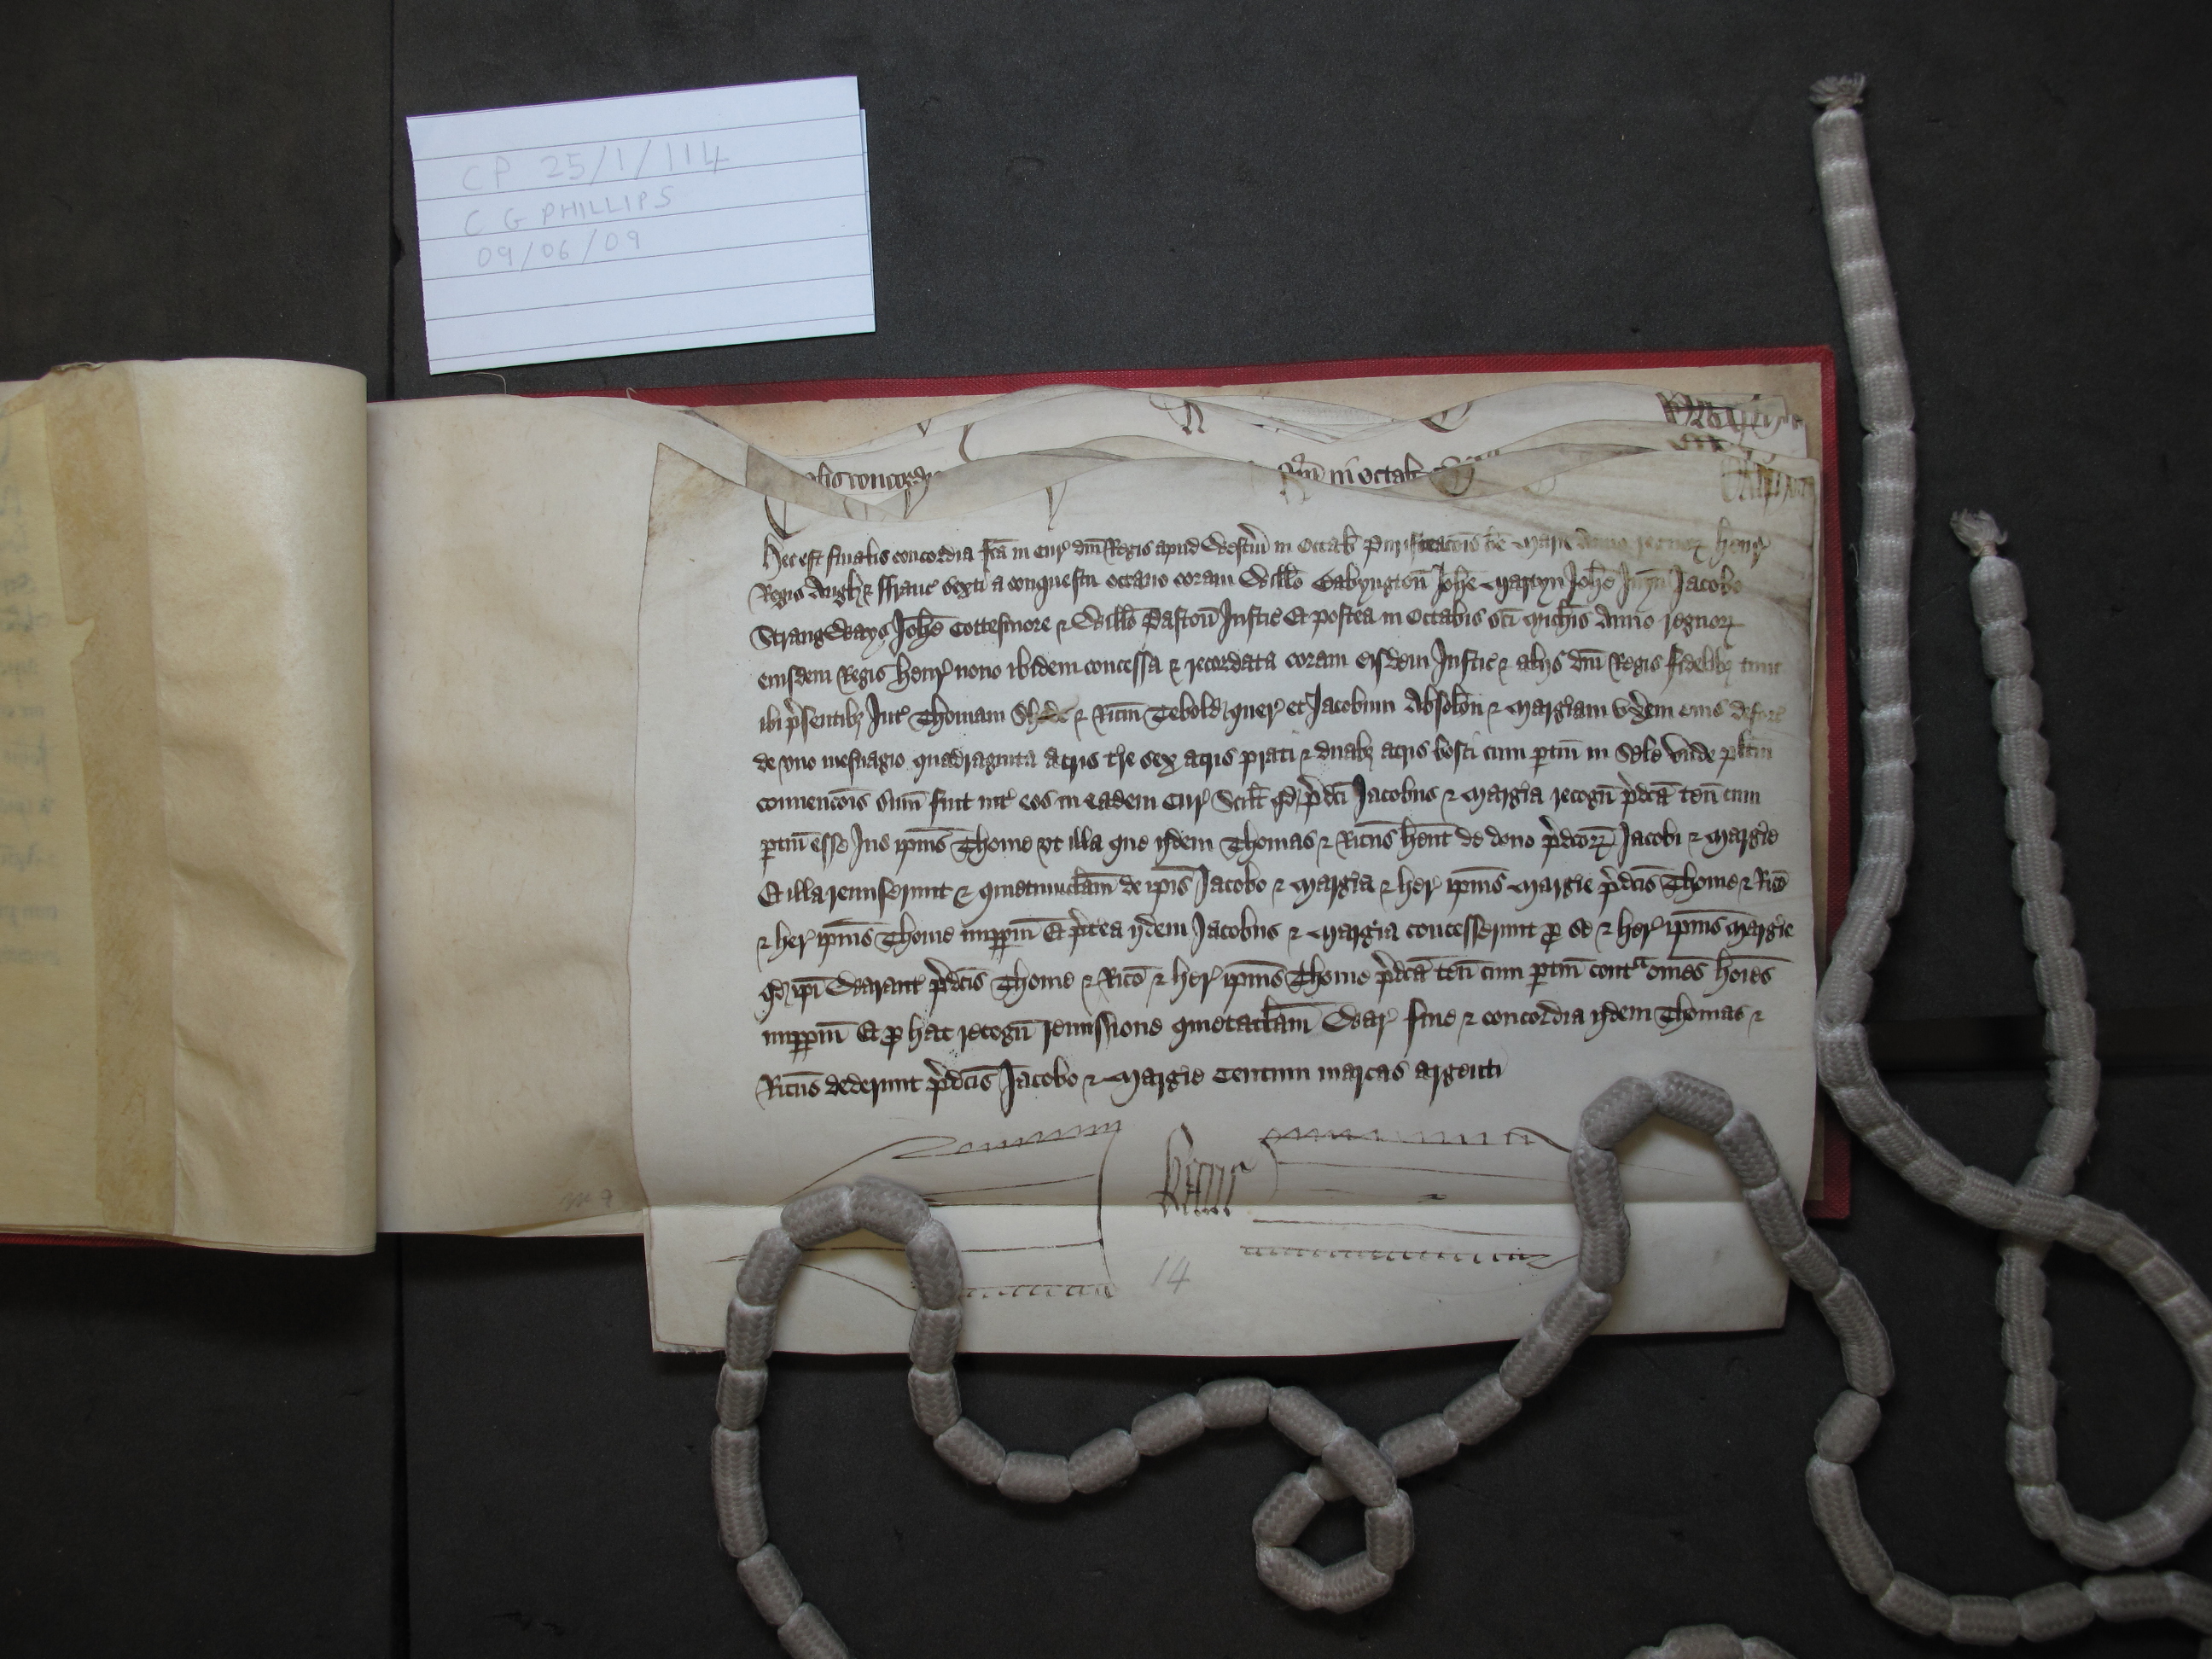 CP 25/1/114
C G PHILLIPS
09/06/09
alis concord
in Octab
Hec est finalis concordia fca in Cur dni Regis apud Westm in Octab Purificacois be Marie Anno regnor Henr
Regis Angl & Franc sexti a conquestu octavo coram Willo Babyngton Johe Martyn Johe Juyn Jacobo
Strangways Johe Cottesmore & Willo Paston Justic Et postea in Octabis sci Michis Anno regnor
eiusdem Regis Henr nono ibidem concessa & recordata coram eisdem Justic & aliis dni Regis fidelib3 tunc
ibi p'sentib3 Int' Thomam & Ricm Tebold quer et Jacobum Absolon & Marg'iam vx'em eius deforc
de vno mesuagio quadraginta acris t're sex acris prati & duab3 acris bosci cum ptin in Sele vnde plitm
convencois sum fuit int' eos in eadem Cur Scilt qd p'dci Jacobus & Marg'ia recogn p'dca ten cum
ptin esse Jus ipius Thome vt illa que ijdem Thomas & Ricus hent de dono p'dcor Jacobi & Marg'ie
Et illa remiserunt & quietumclam de ipis Jacobo & Marg'ia & her ipius Marg'ie p'dcis Thome & Rico
& her ipius Thome imppm Et p't'ea ijdem Jacobus & Marg'ia concesserunt p se & her ipius Marg'ie
qd ipi Warant p'dcis Thome & Rico & her ipius Thome p'dca ten cum ptin cont^a omes hoies
imppm Et p hac recogn remissione quietaclam War fine & concordia ijdem Thomas &
Ricus dederunt p'dcis Jacobo & Marg'ie Centum marcas argenti
Kanc
m 9
14